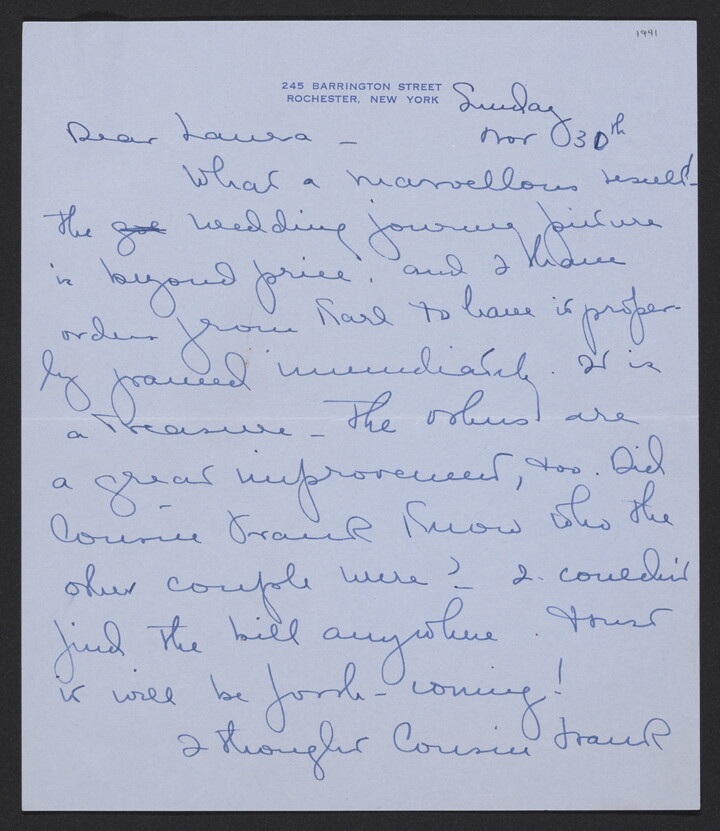 1941
245 BARRINGTON STREET
ROCHESTER, NEW YORK
Sunday
Nov 30th
Dear Laura —
What a marvellous result—
the wedding journey picture
is beyond price. and I have
orders from Karl to have it proper-
ly framed immediately. It is
a treasure — The others are
a great improvement, too. Did
Cousin Frank Know who the
other couple were? I couldn't
find the bill anywhere. Trust
it will be forth-coming!
I thought Cousin Frank